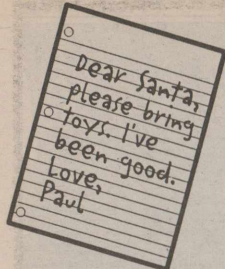 Dear Santa,
please bring
toys. I've
been good.
Love,
Paul